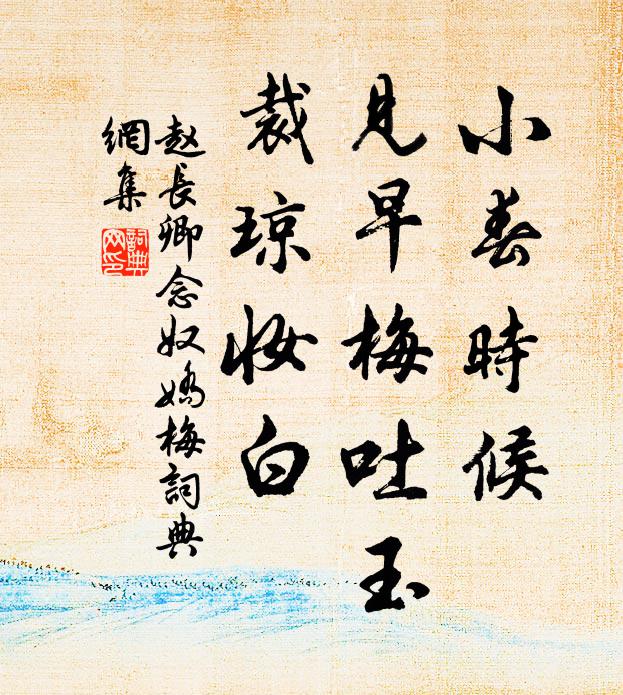 小春時候
見早梅吐玉
裁琼妆白
赵長卿念奴嬌梅詞典
網集
詞典
网印